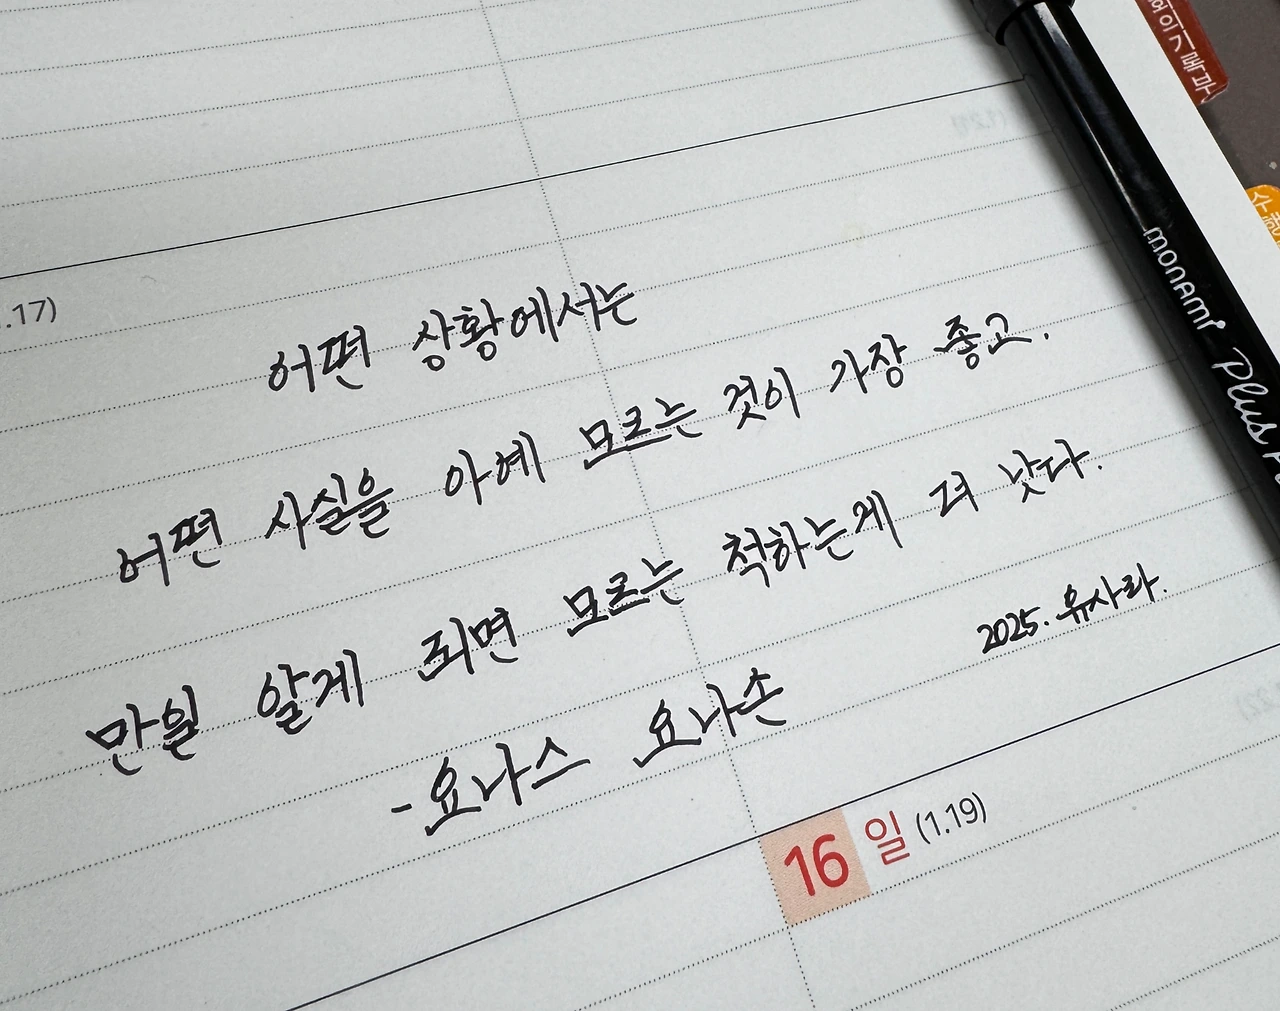 .17)
어떤 상황에서는
어떤 사실을 아예 모르는 것이 가장 좋고.
만일 알게 되면 모르는 척하는게 더 낫다.
2025. 유사라.
-요나스 요나손
16 일 (1.19)
monami Plus